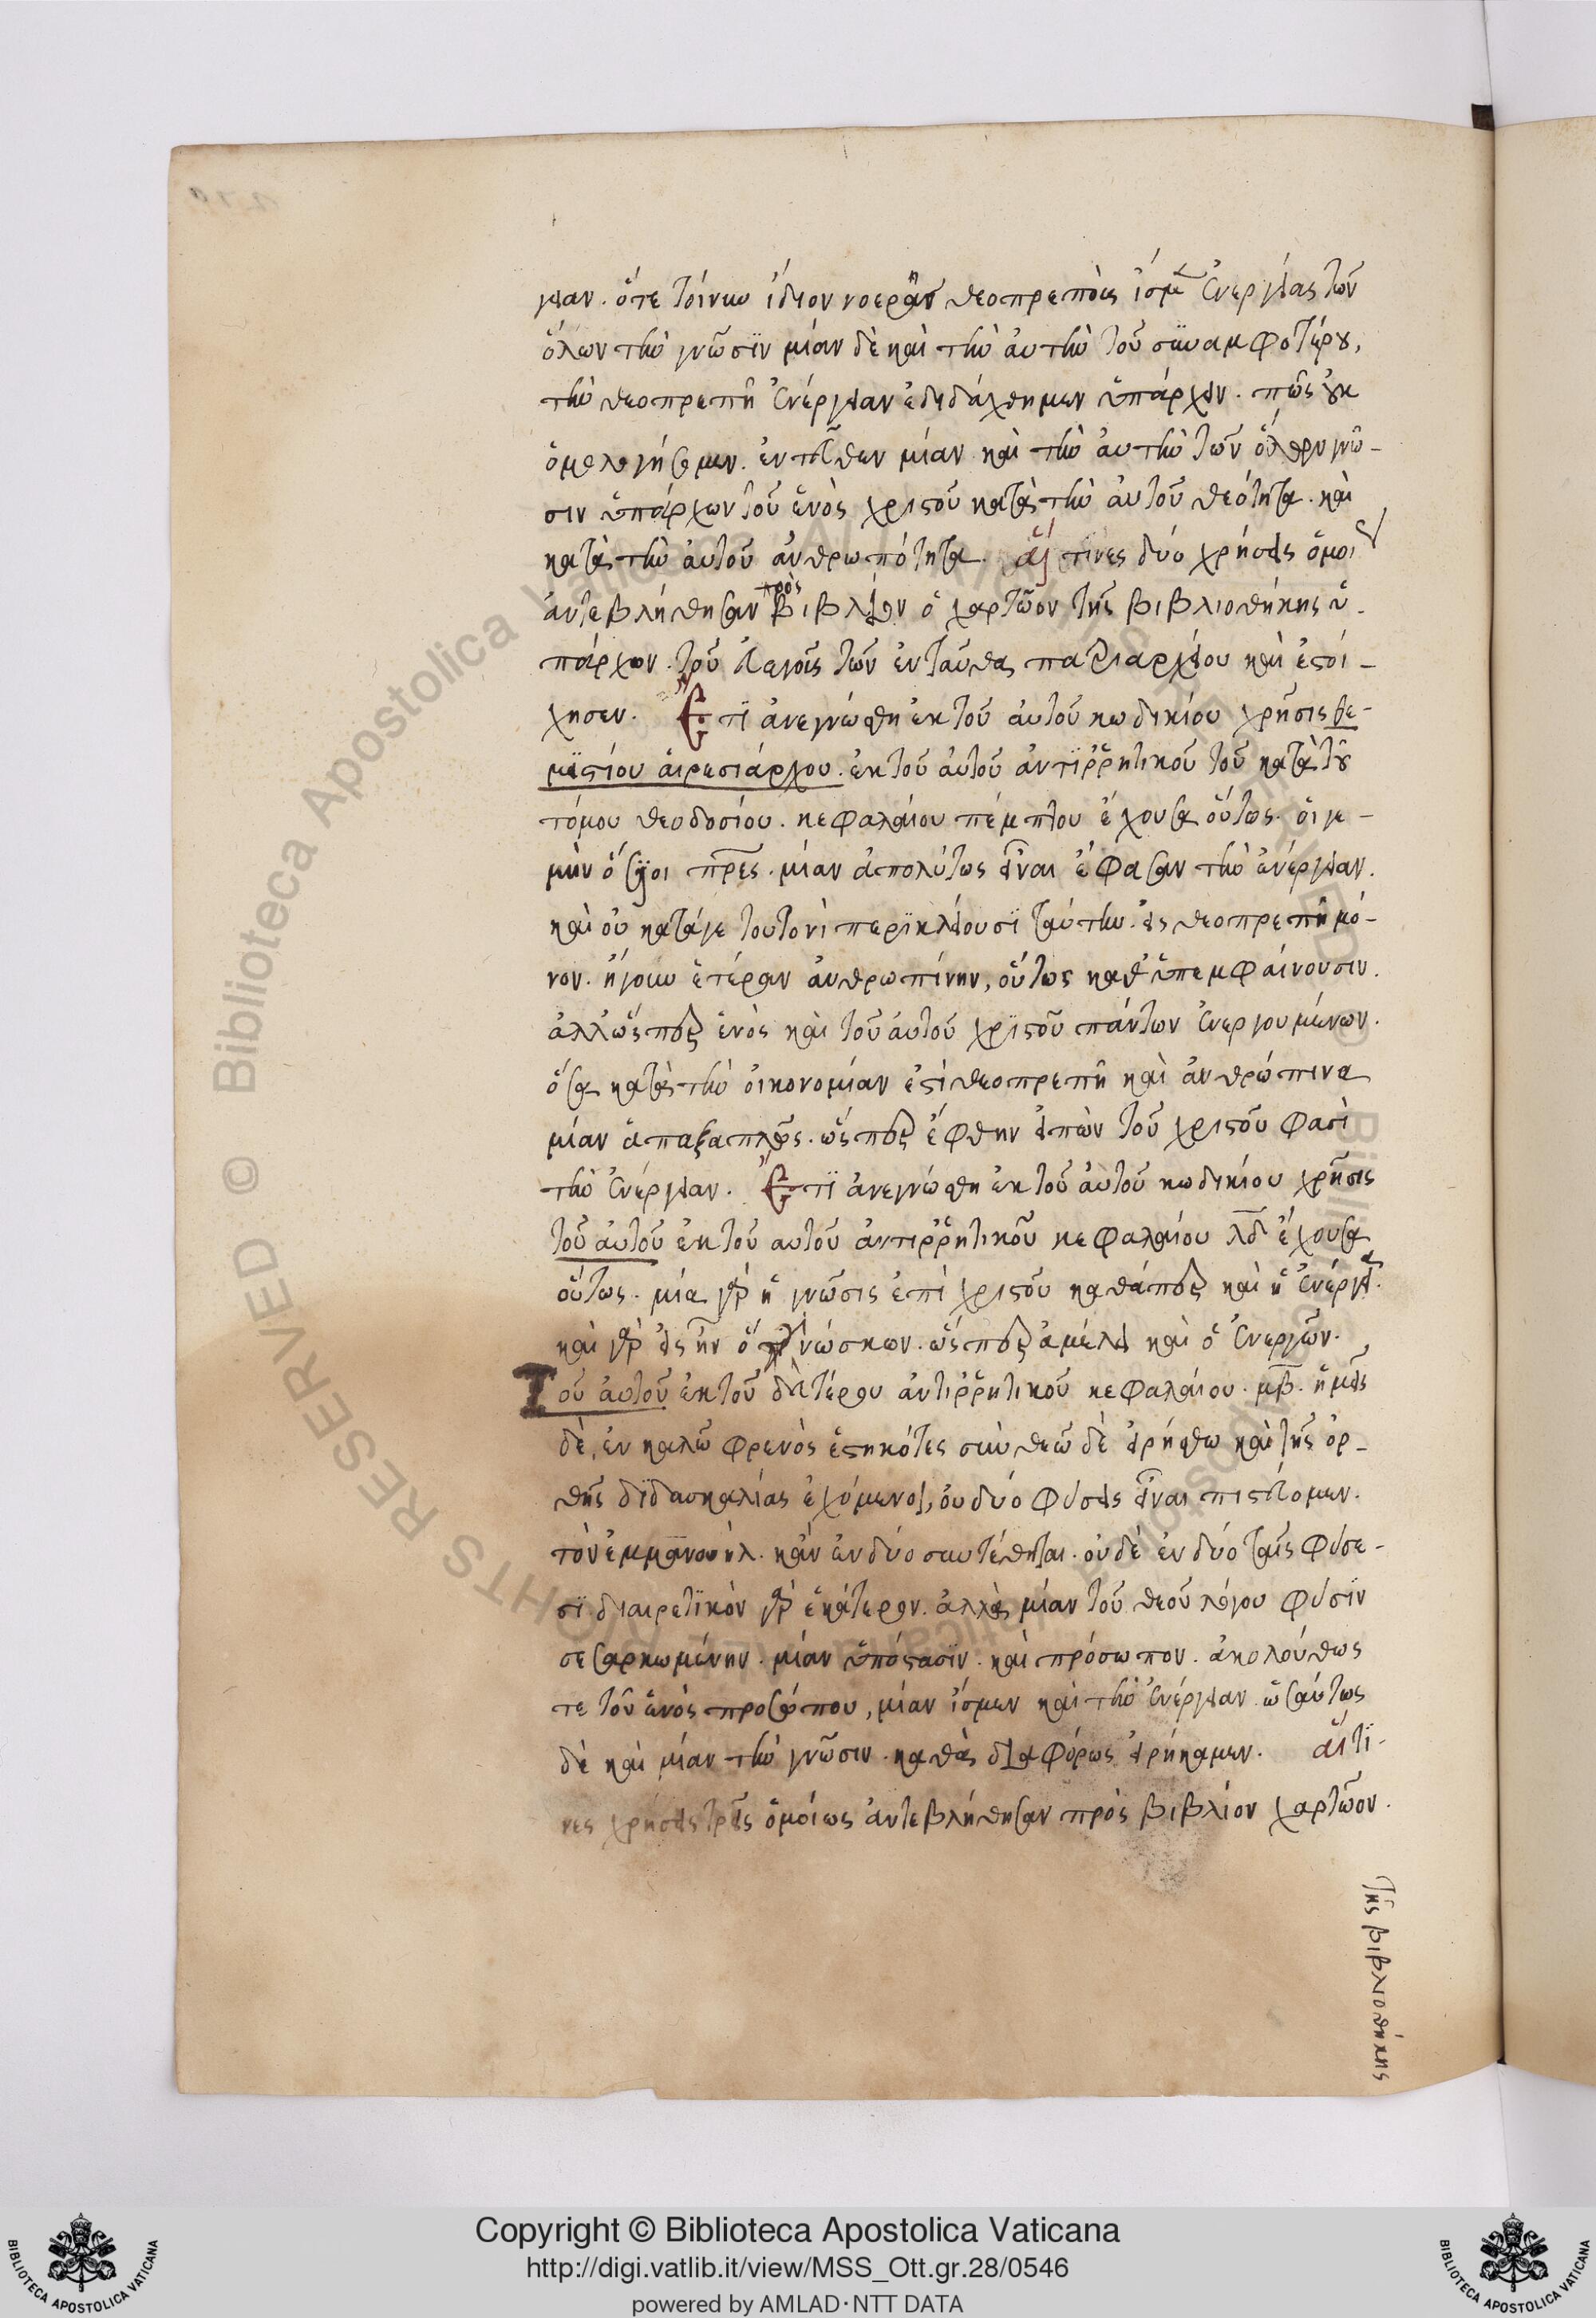 γειαν. ὅτε τοίνυν ἴδιον νοερᾶς θεοπρεποῦς ἴσμεν ἐνεργείας τῶν
ὅλων τὴν γνῶσϊν μίαν δὲ καὶ τὴν ἀυτὴν τοῦ συναμφοτέρου,
τὴν θεοπρεπῆ ἐνέργειαν ἐδιδάχθημεν ὑπάρχειν. πῶς οὐκ
ὁμολογήσομεν. ἐντεῦθεν μίαν καὶ τὴν ἀυτὴν τῶν ὅλων γνῶ-
σιν ὑπάρχειν τοῦ ἑνὸς χριστοῦ κατὰ τὴν ἀυτοῦ θεότητα. καὶ
κατὰ τὴν ἀυτοῦ ἀνθρωπότητα. ἅι τινες δύο χρήσεις ὁμοί
ἀντεβλήθησαν πρὸς βιβλίον ὁ χαρτῶον τῆς βιβλιοθήκης ὑ-
πάρχον. τοῦ ἐυαγοῦς τῶν ἐνταῦθα πατριαρχείου καὶ ἐστοί-
χησεν. Ἔτϊ ἀνεγνώσθη ἐκ τοῦ ἀυτοῦ κωδικίου χρῆσις θε-
μιστίου ἁιρεσιάρχου. ἐκ τοῦ ἀυτοῦ ἀντϊῤῥητικοῦ τοῦ κατὰ τοῦ
τόμου θεοδοσίου. κεφαλαίου πέμπτου ἔχουσα οὕτως. ὁι γε-
μὴν ὅσϊοι πρες. μίαν ἀπολύτως εἶναι ἔφασαν τὴν ἐνέργειαν.
καὶ οὐ κατάγε τουτονὶ περϊκλείουσϊ ταύτην. εἰς θεοπρεπῆ μό-
νον. ἤγουν ἑτέραν ἀνθρωπίνην, οὕτως καθ' ὑπεμφαίνουσιν.
ἀλλ' ὥσπερ ἑνὸς καὶ τοῦ ἀυτοῦ χρϊστοῦ πάντων ἐνεργουμένων.
ὅσα κατὰ τὴν ὀικονομίαν ἐστὶ θεοπρεπῆ καὶ ἀνθρώπινα
μίαν ἁπαξαπλῶς. ὥσπερ ἔφθην εἰπὼν τοῦ χριστοῦ φασὶ
τὴν ἐνέργειαν. Ἔτϊ ἀνεγνώσθη ἐκ τοῦ ἀυτοῦ κωδικίου χρῆσις
τοῦ ἀυτοῦ ἐκ τοῦ αυτοῦ ἀντιῤῥητικοῦ κεφαλαίου λδ ἔχουσα
οὕτως. μία γὰρ ἡ γνῶσις ἐπὶ χριστοῦ καθάπερ καὶ ἡ ἐνέργεια.
καὶ γὰρ εἷς ἦν ὁ γινώσκων. ὥσπερ ἀμέλει καὶ ὁ ἐνεργῶν.
Τοῦ ἀυτοῦ ἐκ τοῦ δευτέρου ἀντιῤῥητικοῦ κεφαλαίου. μβ. ἡμεῖς
δὲ, ἐν καλῶ φρενὸς ἑστηκότες σὺν θεῶ δὲ εἰρήσθω καὶ τῆς ὀρ-
θῆς δϊδασκαλίας ἐχόμενοι, ὀυ δύο φύσεις εἶναι πιστεύομεν.
τὸν ἐμμανουὴλ. κἀν ἐν δύο συντέθηται. οὐδὲ ἐν δύο ταῖς φύσε-
σϊ διαιρετϊκὸν γὰρ ἑκάτερον. ἀλλὰ μίαν τοῦ θεοῦ λόγου φύσϊν
σεσαρκωμένην. μίαν ὑπόστασϊν. καὶ πρόσωπον. ἀκολούθως
τε τοῦ ἑνὸς προσώπου, μίαν ἴσμεν καὶ τὴν ἐνέργειαν ὡσαύτως
δὲ καὶ μίαν τὴν γνῶσιν. καθὰ διαφόρως εἰρήκαμεν. ἅιτϊ-
νες χρήσεις τρεῖς ὁμοίως ἀντεβλήθησαν πρὸς βιβλίον χαρτῶον.
τῆς βιβλιοθήκης
Copyright © Biblioteca Apostolica Vaticana
http://digi.vatlib.it/view/MSS_Ott.gr.28/0546
powered by AMLAD·NTT DATA